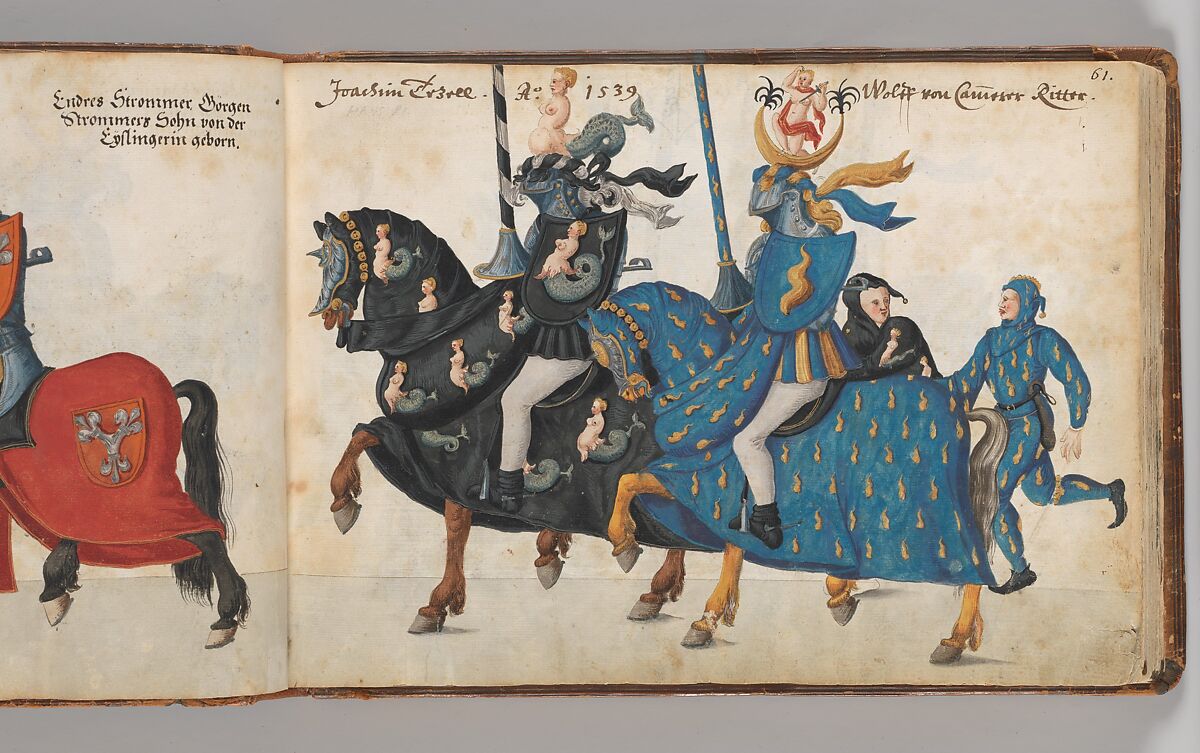 Endres Strommer, Görgen
Strommers Sohn von der
Eyslingerin geborn.
Joachim Tezell. Aº 1539 Wolff von Camerer Ritter.
61.